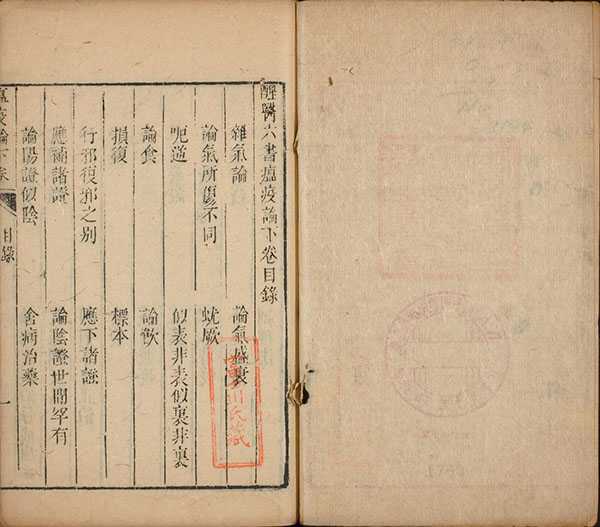 醒醫六書瘟疫論下卷目錄
雜氣論 論氣盛衰
論氣所傷不同 蚘厥
呃逆 似表非表似裏非裏
論食 論飲
損復 標本
行邪伏邪之别 應下諸證
應補諸證 論陰證世間罕有
論陽證似陰 舍病治藥
瘟疫論下卷 目錄 一